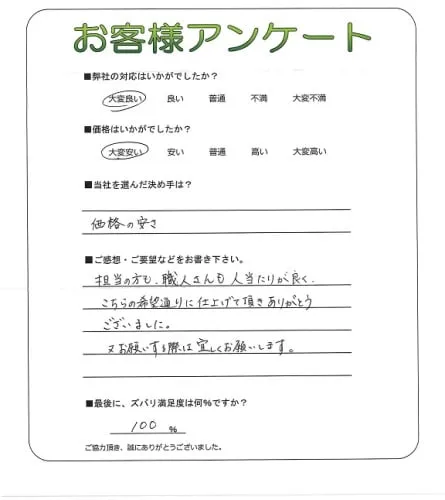 お客様アンケート
■弊社の対応はいかがでしたか？
大変良い 良い 普通 不満 大変不満
■価格はいかがでしたか？
大変安い 安い 普通 高い 大変高い
■当社を選んだ決め手は？
価格の安さ
■ご感想・ご要望などをお書き下さい。
担当の方も、職人さんも人当たりが良く、
こちらの希望通りに仕上げて頂きありがとう
ございました。
又お願いする際は宜しくお願いします。
■最後に、ズバリ満足度は何%ですか？
100 %
ご協力頂き、誠にありがとうございました。